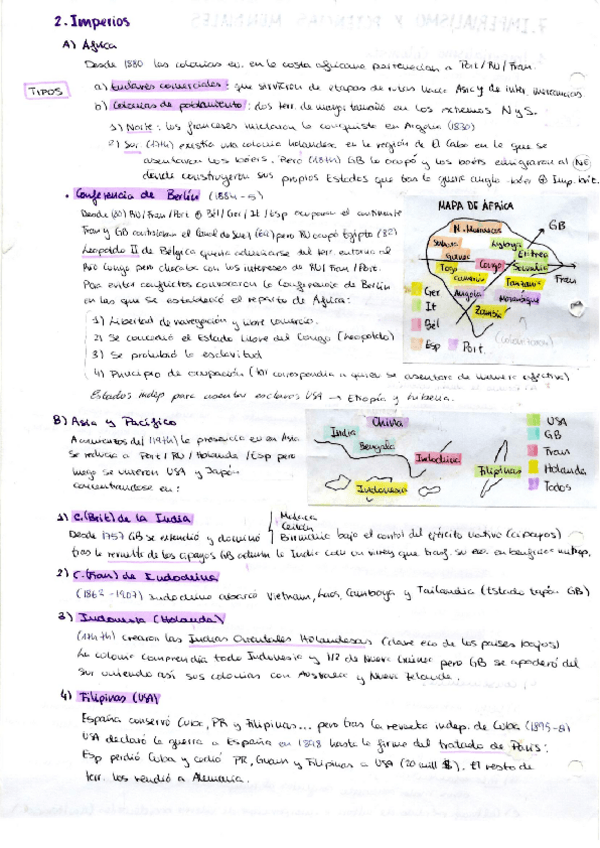 2. Imperios
A) África
Desde 1880 las colonias eu. en la costa africana pertenecían a Port/RU/Fran.
TIPOS
a) Enclaves comerciales: que sirvieron de etapas de rutas hacia Asia y de inter. mercancías
b) Colonias de poblamiento: dos terr. de mayor tamaño en los extremos N y S.
1) Norte: los franceses iniciaron la conquista en Argelia (1830)
2) Sur: (17th) existía una colonia holandesa en la región de El Cabo en la que se
asentaron los bóers. Pero (18th) GB lo ocupó y los bóers emigraron al (NE)
donde construyeron sus propios Estados que tras la guerra anglo-bóer Imp. brit.
• Conferencia de Berlín (1884-5)
Desde (80) RU/Fran/Port Bél/Ger/It/Esp ocuparon el continente
Fran y GB controlaban el Canal de Suez pero RU ocupó Egipto (82)
Leopoldo II de Bélgica quería adueñarse del terr. entorno al
Río Congo pero chocaba con los intereses de RU/Fran/Port.
Para evitar conflictos convocaron la Conferencia de Berlín
en las que se estableció el reparto de África:
1) Libertad de navegación y libre comercio.
2) Se concedió el Estado Libre del Congo (Leopoldo)
3) Se prohibió la esclavitud
4) Principio de ocupación (terr correspondía a quien se asentara de manera efectiva)
Estados indep para asentar esclavos USA → Etiopía y Liberia.
MAPA DE ÁFRICA
GB
N. Marruecos
Sahara
Guinea
Libya
Eritrea
Togo
Congo
Somalia
Camerún
Tanzania
Fran
Ger
Angola
Mozambique
It
Zambia
Bél
Esp
Port.
B) Asia y Pacífico
A comienzos del (19th) la presencia eu en Asia
se reducía a Port/RU/Holanda/Esp pero
luego se unieron USA y Japón
concentrándose en:
China
India
Bengala
Indochina
Filipinas
Indonesia
USA
GB
Fran
Holanda
Todos
1) C.(Brit) de la India
Malasia
Ceilán
Desde 1757 GB se extendió y dominó Birmania bajo el control del ejército nativo (cipayos)
tras la revuelta de los cipayos GB admin la India con un virrey que transf. su eco. en beneficio metrop.
2) C.(Fran) de Indochina
(1863-1907) Indochina abarcó Vietnam, Laos, Camboya y Tailandia (Estado tapón GB)
3) Indonesia (Holanda)
(17th) crearon las Indias Orientales Holandesas (clave eco de los países bajos)
La colonia comprendía toda Indonesia y 1/2 de Nueva Guinea pero GB se apoderó del
sur uniendo así sus colonias con Australia y Nueva Zelanda.
4) Filipinas (USA)
España conservó Cuba, PR y Filipinas... pero tras la revuelta indep. de Cuba (1895-8)
USA declaró la guerra a España en 1898 hasta la firma del tratado de París:
Esp perdió Cuba y cedió PR, Guam y Filipinas a USA (20 mill $). El resto de
terr. los vendió a Alemania.